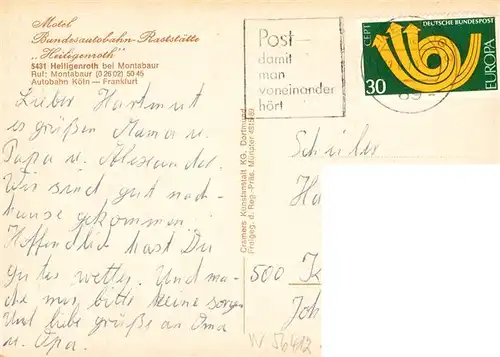 Motel
Bundesautobahn-Raststätte
„Heiligenroth"
5431 Heiligenroth bei Montabaur
Ruf: Montabaur (0 26 02) 50 45
Autobahn Köln — Frankfurt
Lieber Hartmut
es grüßen Mama u.
Papa u. Alexander.
Wir sind gut nach-
hause gekommen.
Hoffendlich hast Du
gutes wetter. Und ma-
che mir bitte keine sorgen
Und liebe grüße an Oma
u. Opa.
Cramers Kunstanstalt KG, Dortmund
Freigeg. d. Reg.-Präs. Münster
Post —
damit
man
voneinander
hört
CEPT
DEUTSCHE BUNDESPOST
30
EUROPA
Schüler
Ha
500 K
Joh
W 56412